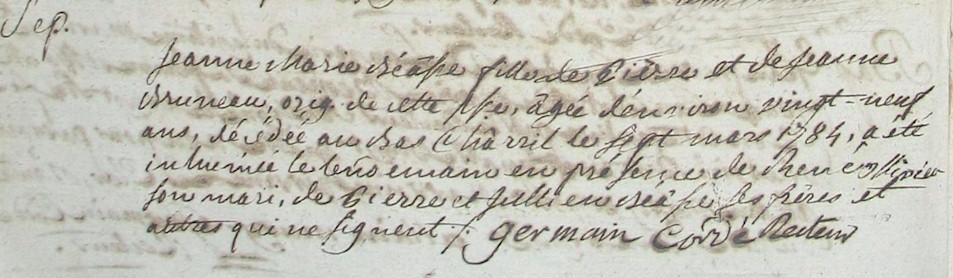 Sep.
Jeanne Marie fille de Pierre et de Jeanne
Bruneau, orig. de cette psse, âgée d'environ vingt-neuf
ans, décédée au Bas Charril le sept mars 1784, a été
inhumée le lendemain en présence de René
son mari, de Pierre et Jullien ses frères et
autres qui ne signent ⁒ germain Corré Recteur